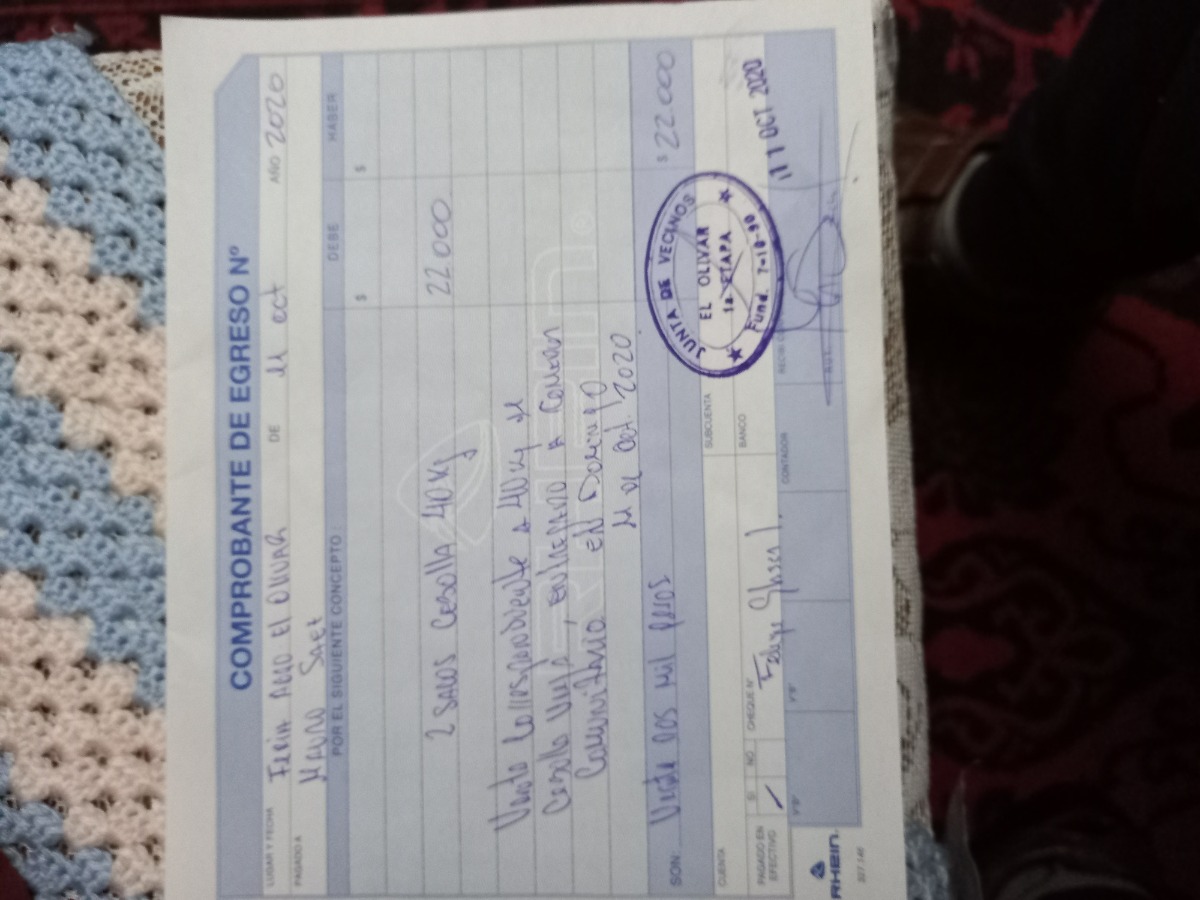 COMPROBANTE DE EGRESO Nº
LUGAR Y FECHA FERIA AGRO El OLIVAR DE 11 oct AÑO 2020
PAGADO A MAURO Saez
POR EL SIGUIENTE CONCEPTO: DEBE HABER
$ $
2 SACOS CEBOLLA 40 Kg 22.000
Venta Correspondiente A 40 Kg de
Cebolla, entregado A Comedor
Comunitario EN DOMINGO
11 de oct. 2020
RHEIN®
SON: Veinte Dos Mil pesos $ 22.000
CUENTA SUBCUENTA
PAGADO EN EFECTIVO SI NO CHEQUE N° BANCO
Felipe
Vº Bº Vº Bº CONTADOR
JUNTA DE VECINOS
EL OLIVAR
1a ETAPA
Fund. 7-10-90
11 OCT 2020
RHEIN.